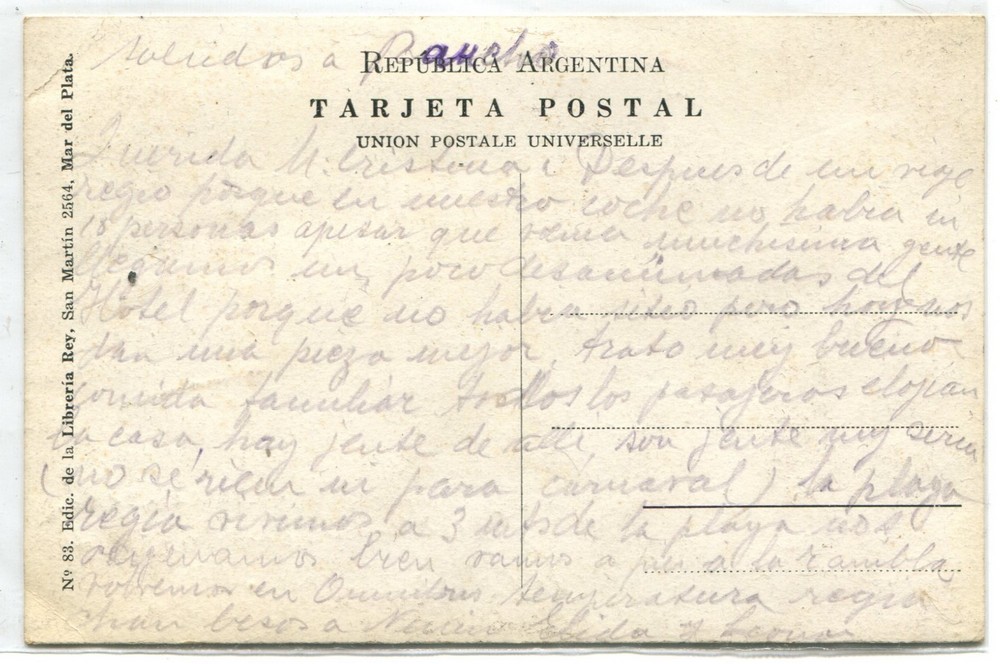 saludos a Pancho
REPÚBLICA ARGENTINA
TARJETA POSTAL
UNION POSTALE UNIVERSELLE
Querida M. Cristina: Despues de un viaje
regio porque en nuestro coche no habia ni
10 personas apesar que venia muchisima gente
llegamos un poco desanimadas del
Hotel porque no habia sitio pero hoy nos
dan una pieza mejor, trato muy bueno
comida familiar todos los pasajeros elojian
la casa, hay jente de alli, son jente muy seria
(no se rien ni para carnaval) la playa
regia vivimos a 3 mts de la playa nos
bien vamos a pie a la rambla
volvemos en Omnibus. temperatura regia
chau besos a Elida y Leonor
Nº 83. Edic. de la Librería Rey, San Martín 2564, Mar del Plata.